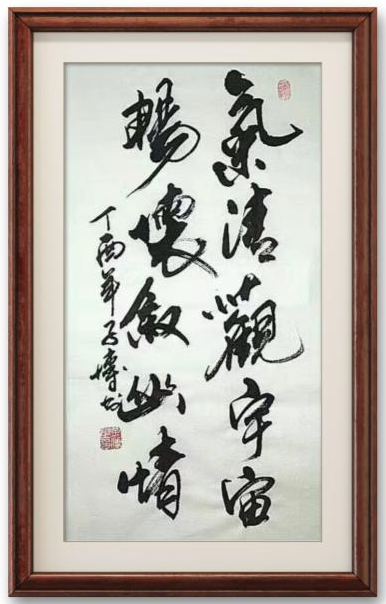 氣清觀宇宙
暢懷敘幽情
丁酉年子博书